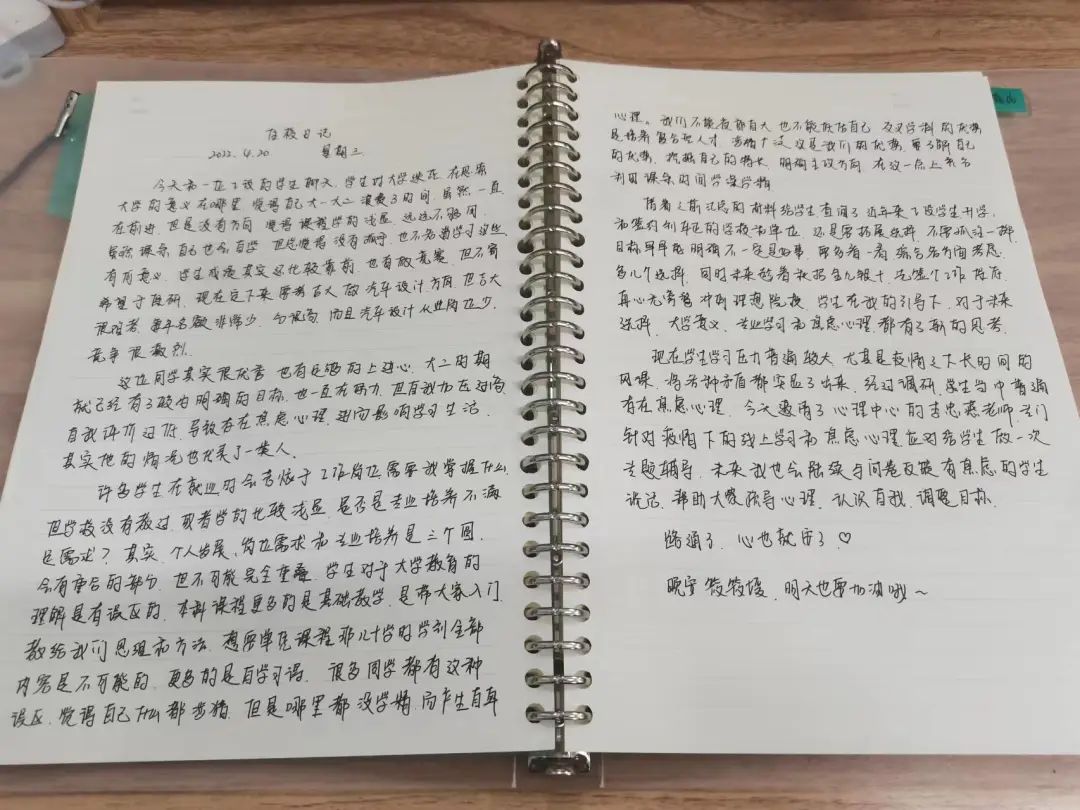 在校日记
2022.4.20 星期三
今天和一位丁设的学生聊天,学生对大学迷茫,在思索
大学的意义在哪里,觉得自己大一大二浪费了时间,虽然一直
在前进,但是没有方向,觉得课程学的浅显,远远不够用,
虽然课余自己也会自学,但总觉得没有,也不知道学习这些
有何意义。学生成绩其实还比较靠前,也有做竞赛,但不寄
希望于保研。现在定下来要考吉大做汽车设计方向,但吉大
很难考,每年名额非常少,分很高,而且汽车设计从业岗位少,
竞争很激烈。
这位同学其实很优秀,也有足够的上进心,大二的时期
就已经有了较为明确的目标,也一直在努力,但自我加压过高,
自我评价过低,导致存在焦虑心理,进而影响学习生活。
其实他的情况也代表了一类人。
许多学生在就业时会考虑于工作岗位需要我掌握什么,
但学校没有教过,或者学的比较浅显,是否是专业培养不满
足需求?其实,个人发展、岗位需求和专业培养是三个圆,
会有重合的部分,但不可能完全重叠。学生对于大学教育的
理解是有误区的,本科课程更多的是基础教学,是带大家入门,
教给我们思维和方法,想要单凭课程那几十学时学到全部
内容是不可能的,更多的是自学习得。很多同学都有这种
误区,觉得自己什么都步猎,但是哪里都没学精,而产生自卑
心理。我们不能夜郎自大,也不能低估自己,交叉学科的优势
是培养复合型人才,涉猎广泛,这是我们的优势,要了解自己
的优势,挖掘自己的特长,明确主攻方向,在这一点上充分
利用课余时间学深学精。
借着汇总的材料给学生查阅了近年来丁设学生升学
和签约到单位的学校和单位,还是要拓展选择,不要抓过一
目标早早能明确不一定是好事,要多看一看,综合各方面考虑,
多几个选择,同时未来秋招多几,先签个工作保底,
再心无旁骛冲刺理想院校。学生在我的引导下,对于未来
选择、大学意义、专业学习和焦虑心理都有了新的思考。
现在学生学习压力普遍较大,尤其是疫情之下长时间的
网课,将各种矛盾都突显了出来,经过调研,学生当中普遍
存在焦虑心理,今天邀请了心理中心的李忠燕老师,专门
针对疫情下的线上学习和焦虑心理应对给学生做一次
专题辅导,未来我也会陆续与问卷反馈有焦虑的学生
谈话,帮助大家疏导心理,认识自我,调整目标。
路通了,心也就亮了♡
晚安 筱筱媛,明天也要加油哦~